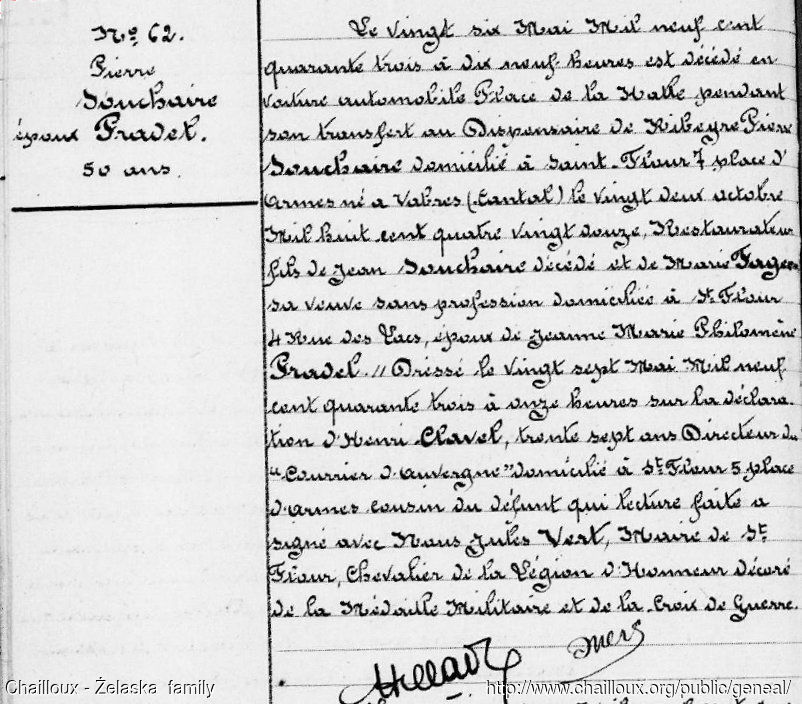 No 62.
Pierre
Souchaire
époux Pradel.
50 ans.
Le vingt six Mai Mil neuf cent
quarante trois à dix neuf heures est décédé en
voiture automobile Place de la Halle pendant
son transfert au Dispensaire de Ribeyre Pierre
Souchaire domicilié à Saint-Flour 7 place d'
armes né a Vabres (Cantal) le vingt deux octobre
Mil huit cent quatre vingt douze, Restaurateur
fils de Jean Souchaire décédé et de Marie
sa veuve sans profession domiciliée à St Flour
4 Rue des Lacs, époux de Jeanne Marie Philomène
Pradel. // Dressé le vingt sept Mai Mil neuf
cent quarante trois à onze heures sur la déclara-
tion d'Henri Clavel, trente sept ans Directeur du
"Courrier d'Auvergne" domicilié à St Flour 5 place
d'armes cousin du défunt qui lecture faite a
signé avec Nous Jules Vert, Maire de St
Flour, Chevalier de la Légion d'Honneur décoré
de la Médaille Militaire et de la Croix de Guerre.
Chailloux - Želaska family
http://www.chailloux.org/public/geneal/